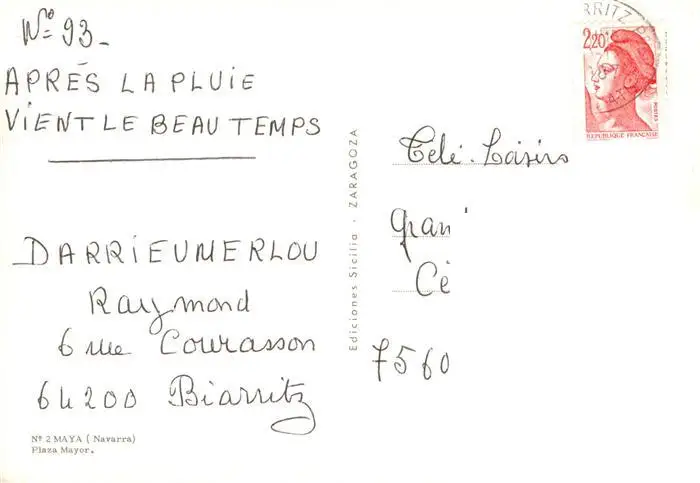 Nº 93_
APRÈS LA PLUIE
VIENT LE BEAU TEMPS
DARRIEUMERLOU
Raymond
6 rue Courasson
64200 Biarritz
Nº 2 MAYA ( Navarra)
Plaza Mayor.
Ediciones Sicilia · ZARAGOZA
RRITZ
2,20
POSTES
REPUBLIQUE FRANÇAISE
Télé-Loisirs
gran
Cé
7560